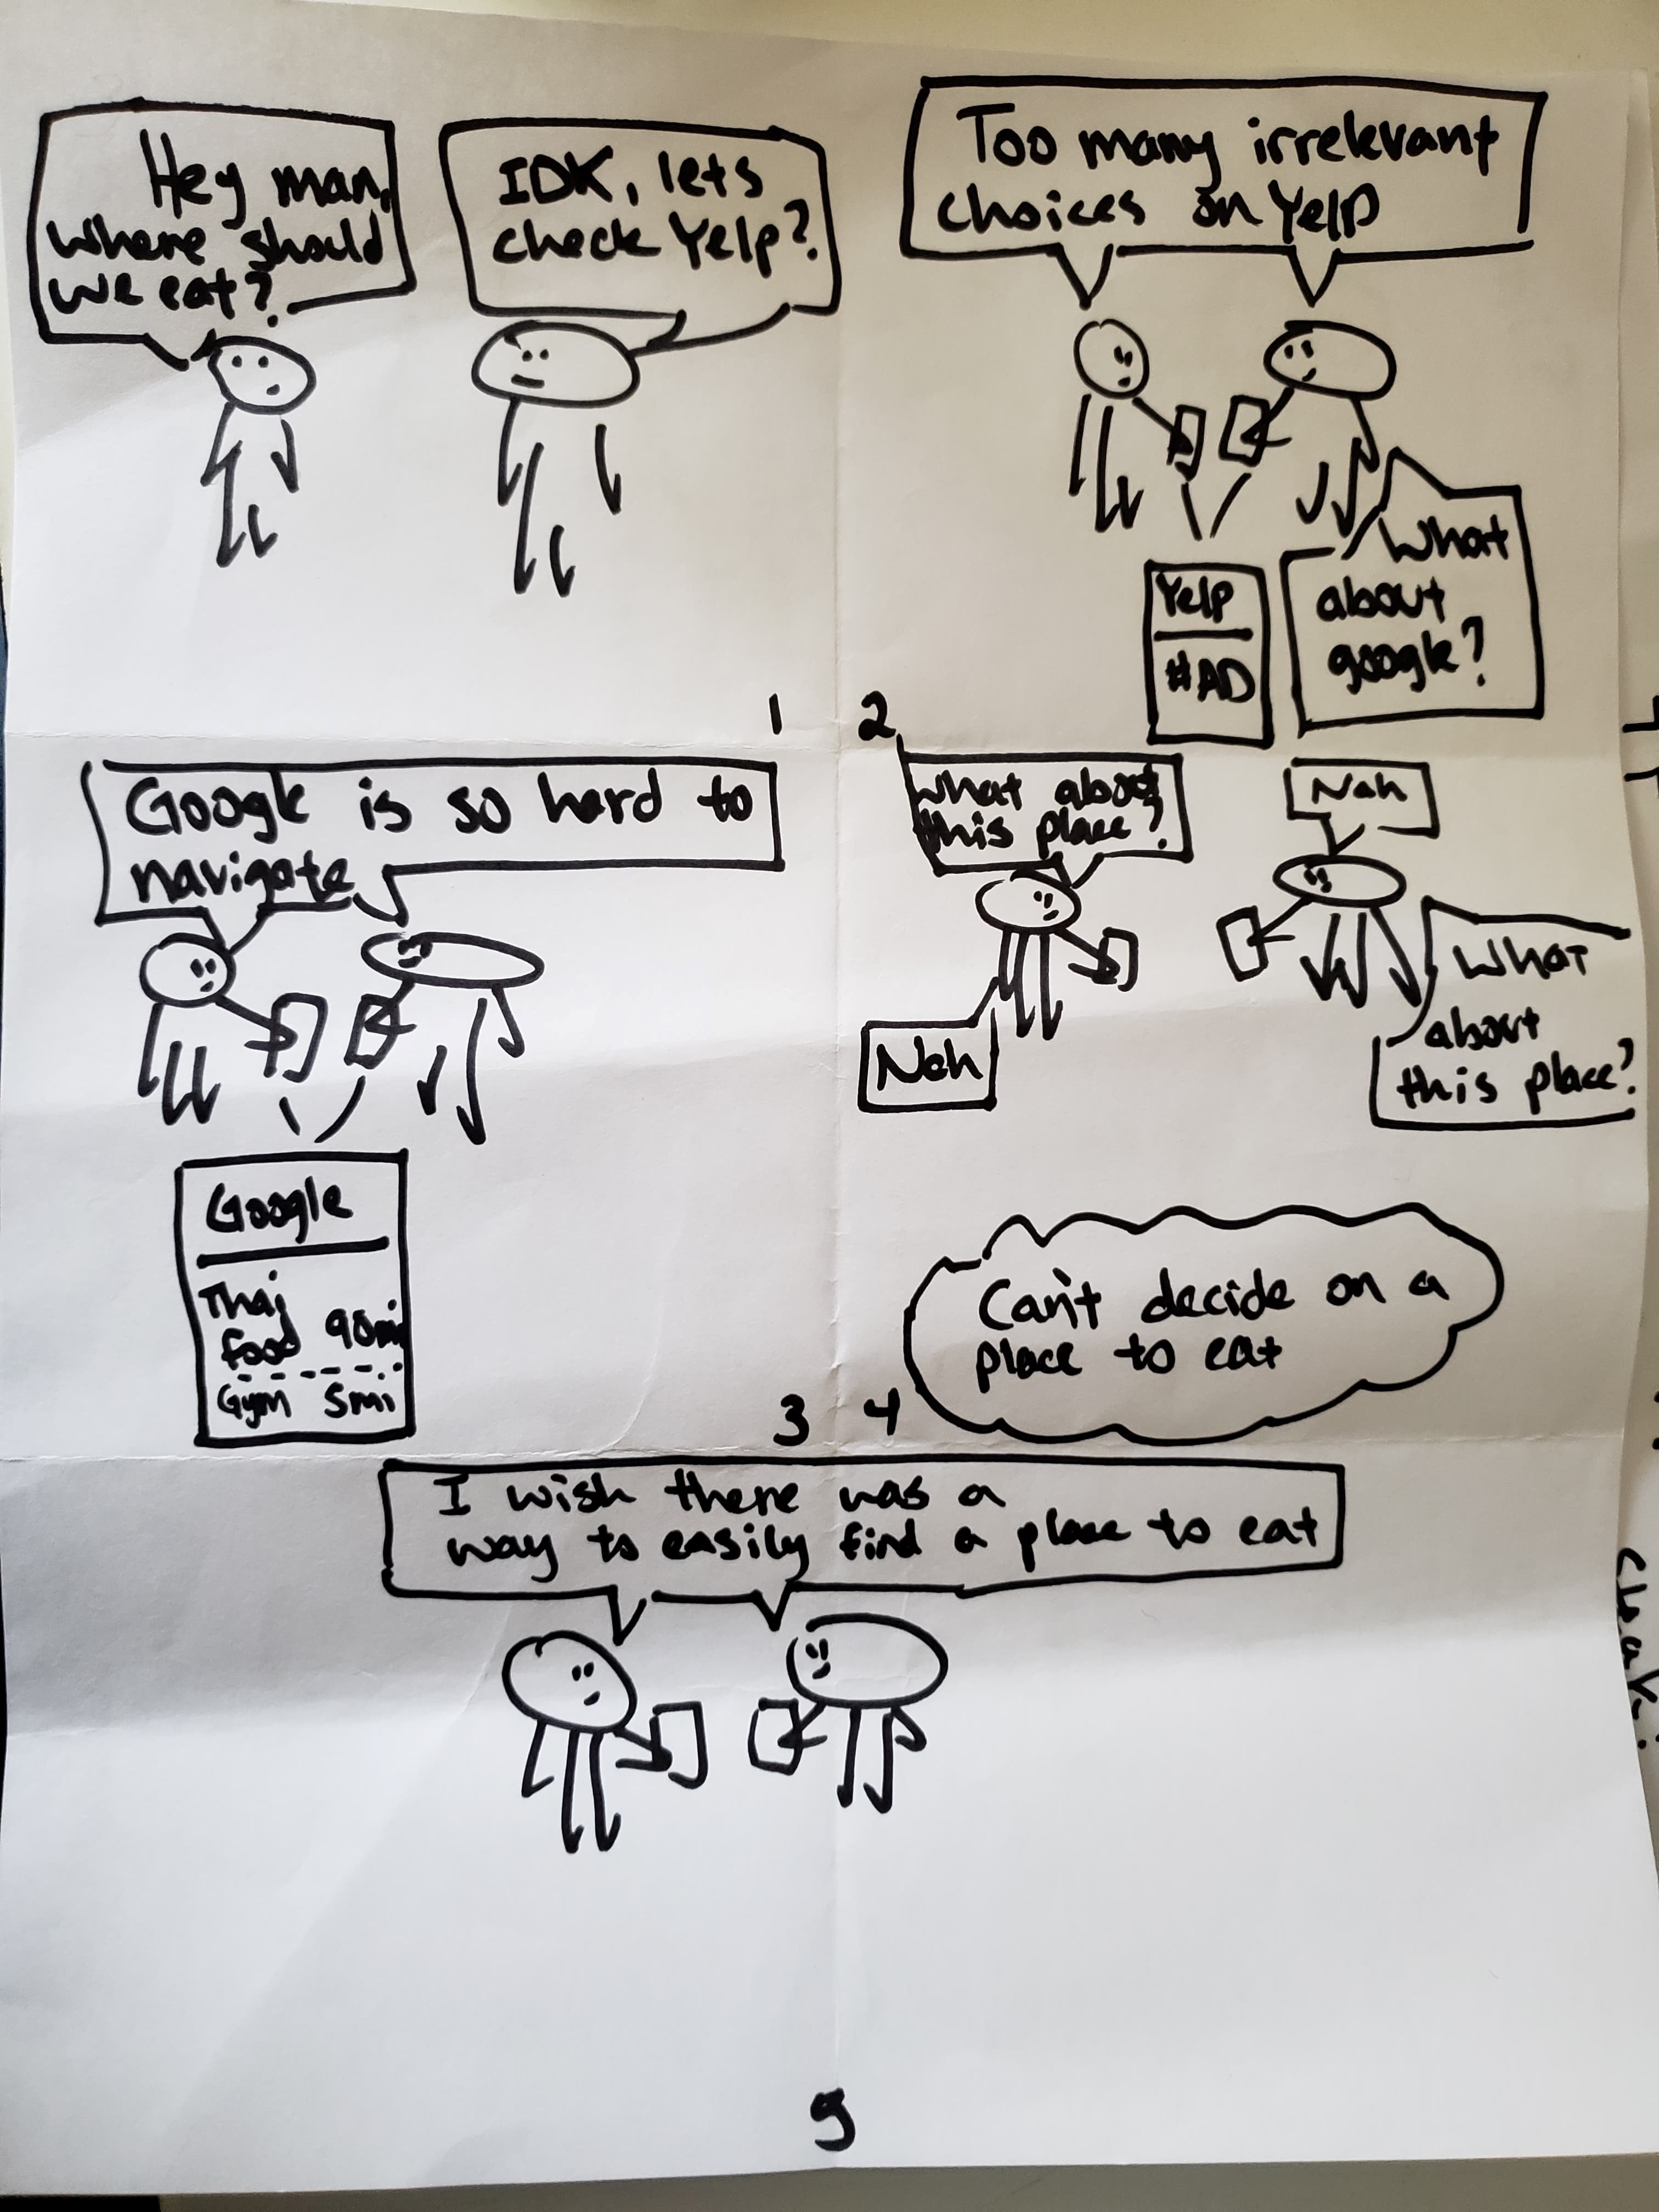 Hey man,
where should
we eat?
IDK, lets
check Yelp?
1
Too many irrelevant
choices on Yelp
Yelp
#AD
What
about
google?
2
Google is so hard to
navigate
Google
Thai
food 90mi
Gym 5mi
3
What about
this place?
Nah
Nah
What
about
this place?
Can't decide on a
place to eat
4
I wish there was a
way to easily find a place to eat
5